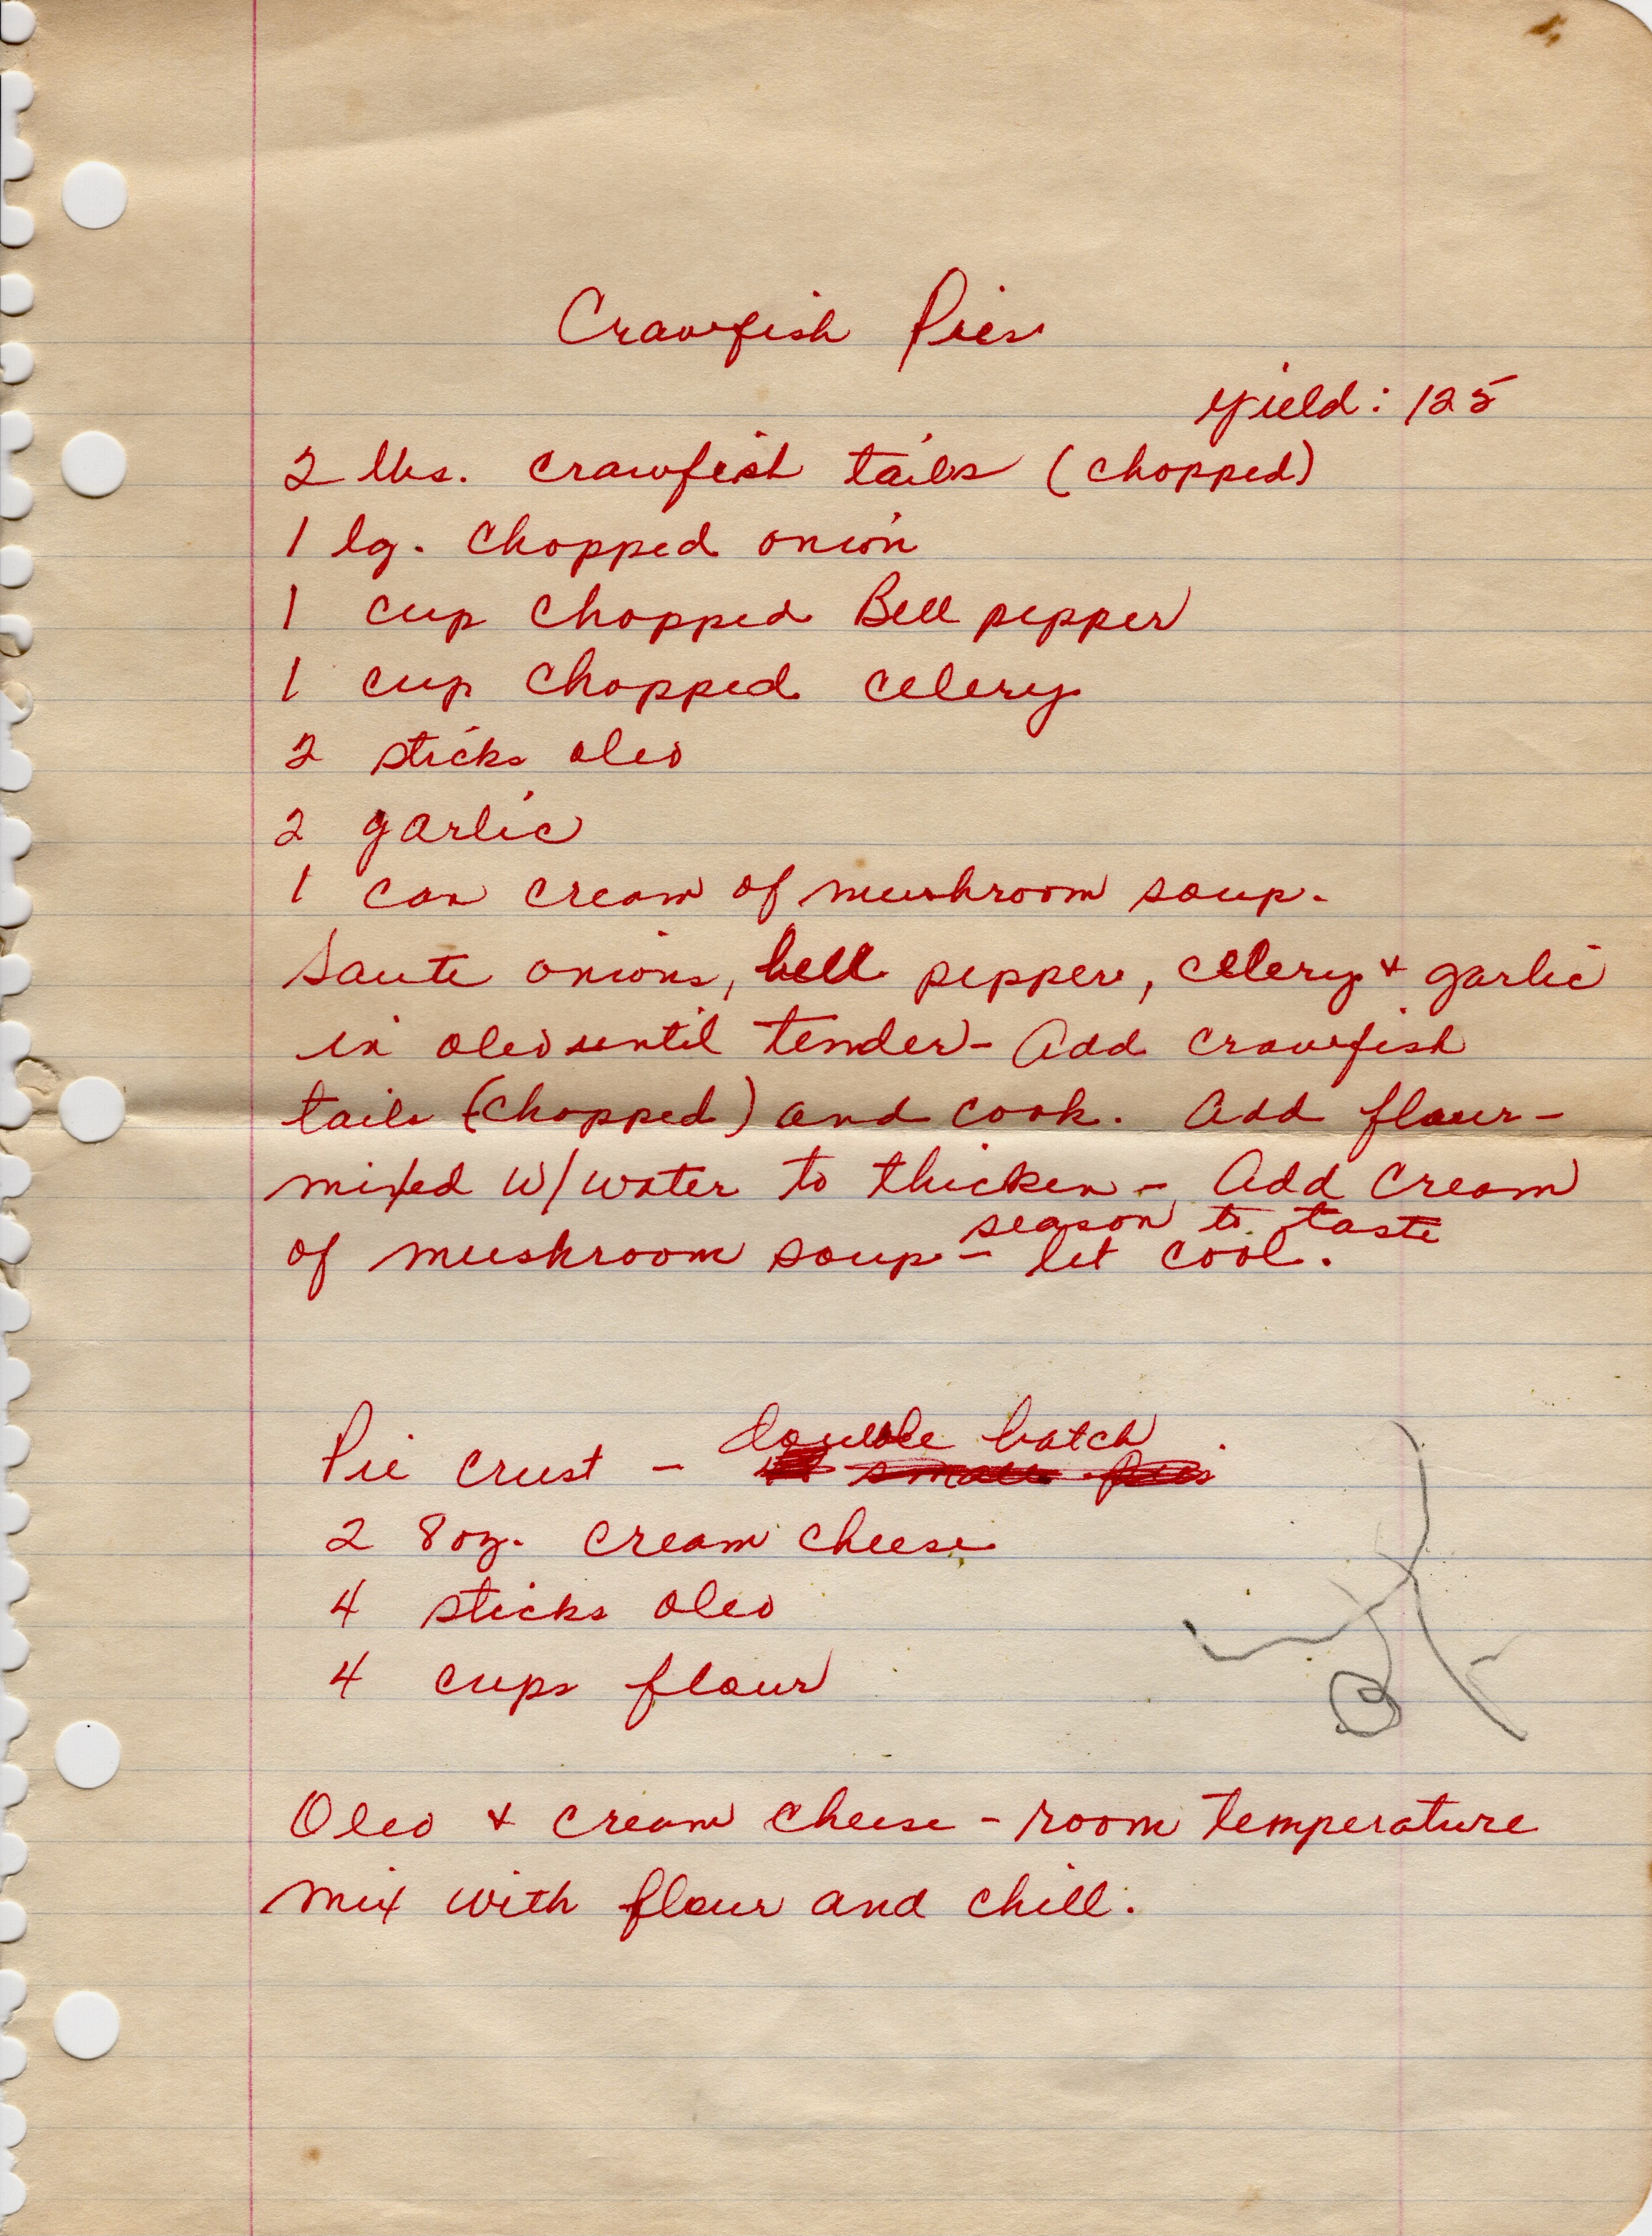 Crawfish Pies
yield: 125
2 lbs. crawfish tails (chopped)
1 lg. chopped onion
1 cup chopped Bell pepper
1 cup chopped celery
2 sticks oleo
2 garlic
1 can cream of mushroom soup.
Saute onions, bell pepper, celery + garlic
in oleo until tender - Add crawfish
tails (chopped) and cook. Add flour -
mixed w/water to thicken - Add cream
season to taste
of mushroom soup - let cool.
double batch
Pie crust - small pies
2 8oz. cream cheese
4 sticks oleo
4 cups flour
Oleo + cream cheese - room temperature
mix with flour and chill.